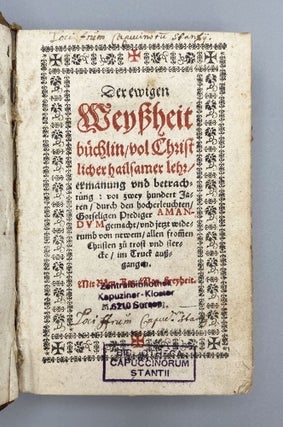 Loci frum Capucinorū Stanzij.
Der ewigen
Weyßheit
büchlin/vol Christ
licher hailsamer lehr/
ermanung vnd betrach-
tung: vor zwey hundert Ja-
ren/durch den hocherleuchten/
Gotseligen Prediger AMAN-
DVM gemacht/vnd jetzt wide-
rumb von newem/allen frommen
Christen zu trost vnd ster-
cke/im Truck auß-
gangen.
Mit Röm. Kay. May. Freyheit.
Kapuziner-Kloster
Loci ffrum Capuci Stanzij
BIBLIOTHECA
CAPUCCINORUM
STANTII